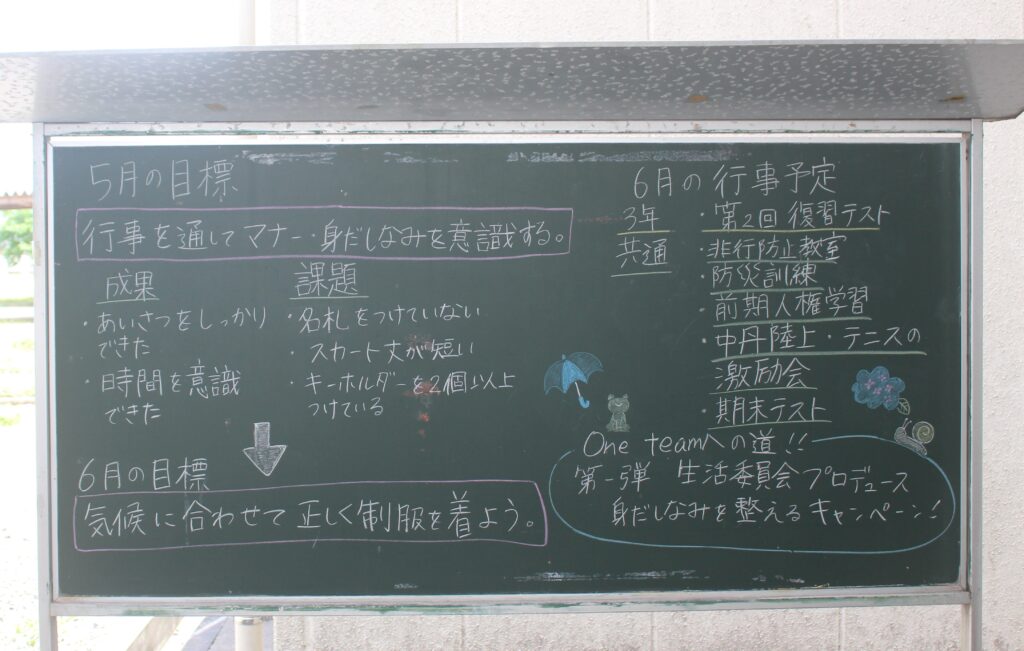 5月の目標
行事を通してマナー・身だしなみを意識する。
成果
・あいさつをしっかり
できた
・時間を意識
できた
課題
・名札をつけていない
・スカート丈が短い
・キーホルダーを2個以上
つけている
6月の目標
気候に合わせて正しく制服を着よう。
6月の行事予定
3年 ・第2回復習テスト
共通 ・非行防止教室
・防災訓練
・前期人権学習
・中丹陸上・テニスの
激励会
・期末テスト
One teamへの道!!
第一弾 生活委員会プロデュース
身だしなみを整えるキャンペーン!